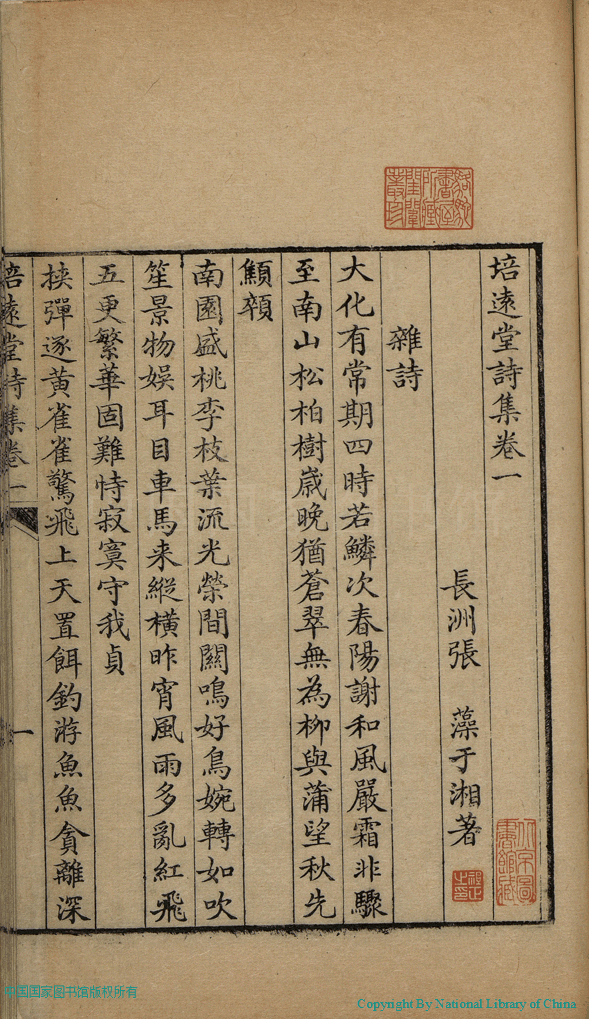 培遠堂詩集卷一
長洲張　藻于湘著
雜詩
大化有常期四時若鱗次春陽謝和風嚴霜非驟
至南山松柏樹歲晚猶蒼翠無為柳與蒲望秋先
顦顇
南園盛桃李枝葉流光榮間關鳴好鳥婉轉如吹
笙景物娛耳目車馬来縱橫昨宵風雨多亂紅飛
五更繁華固難恃寂寞守我貞
挾彈逐黃雀雀驚飛上天置餌釣游魚魚貪離深
培遠堂詩集卷一
一
中国国家图书馆版权所有
Copyright By National Library of China